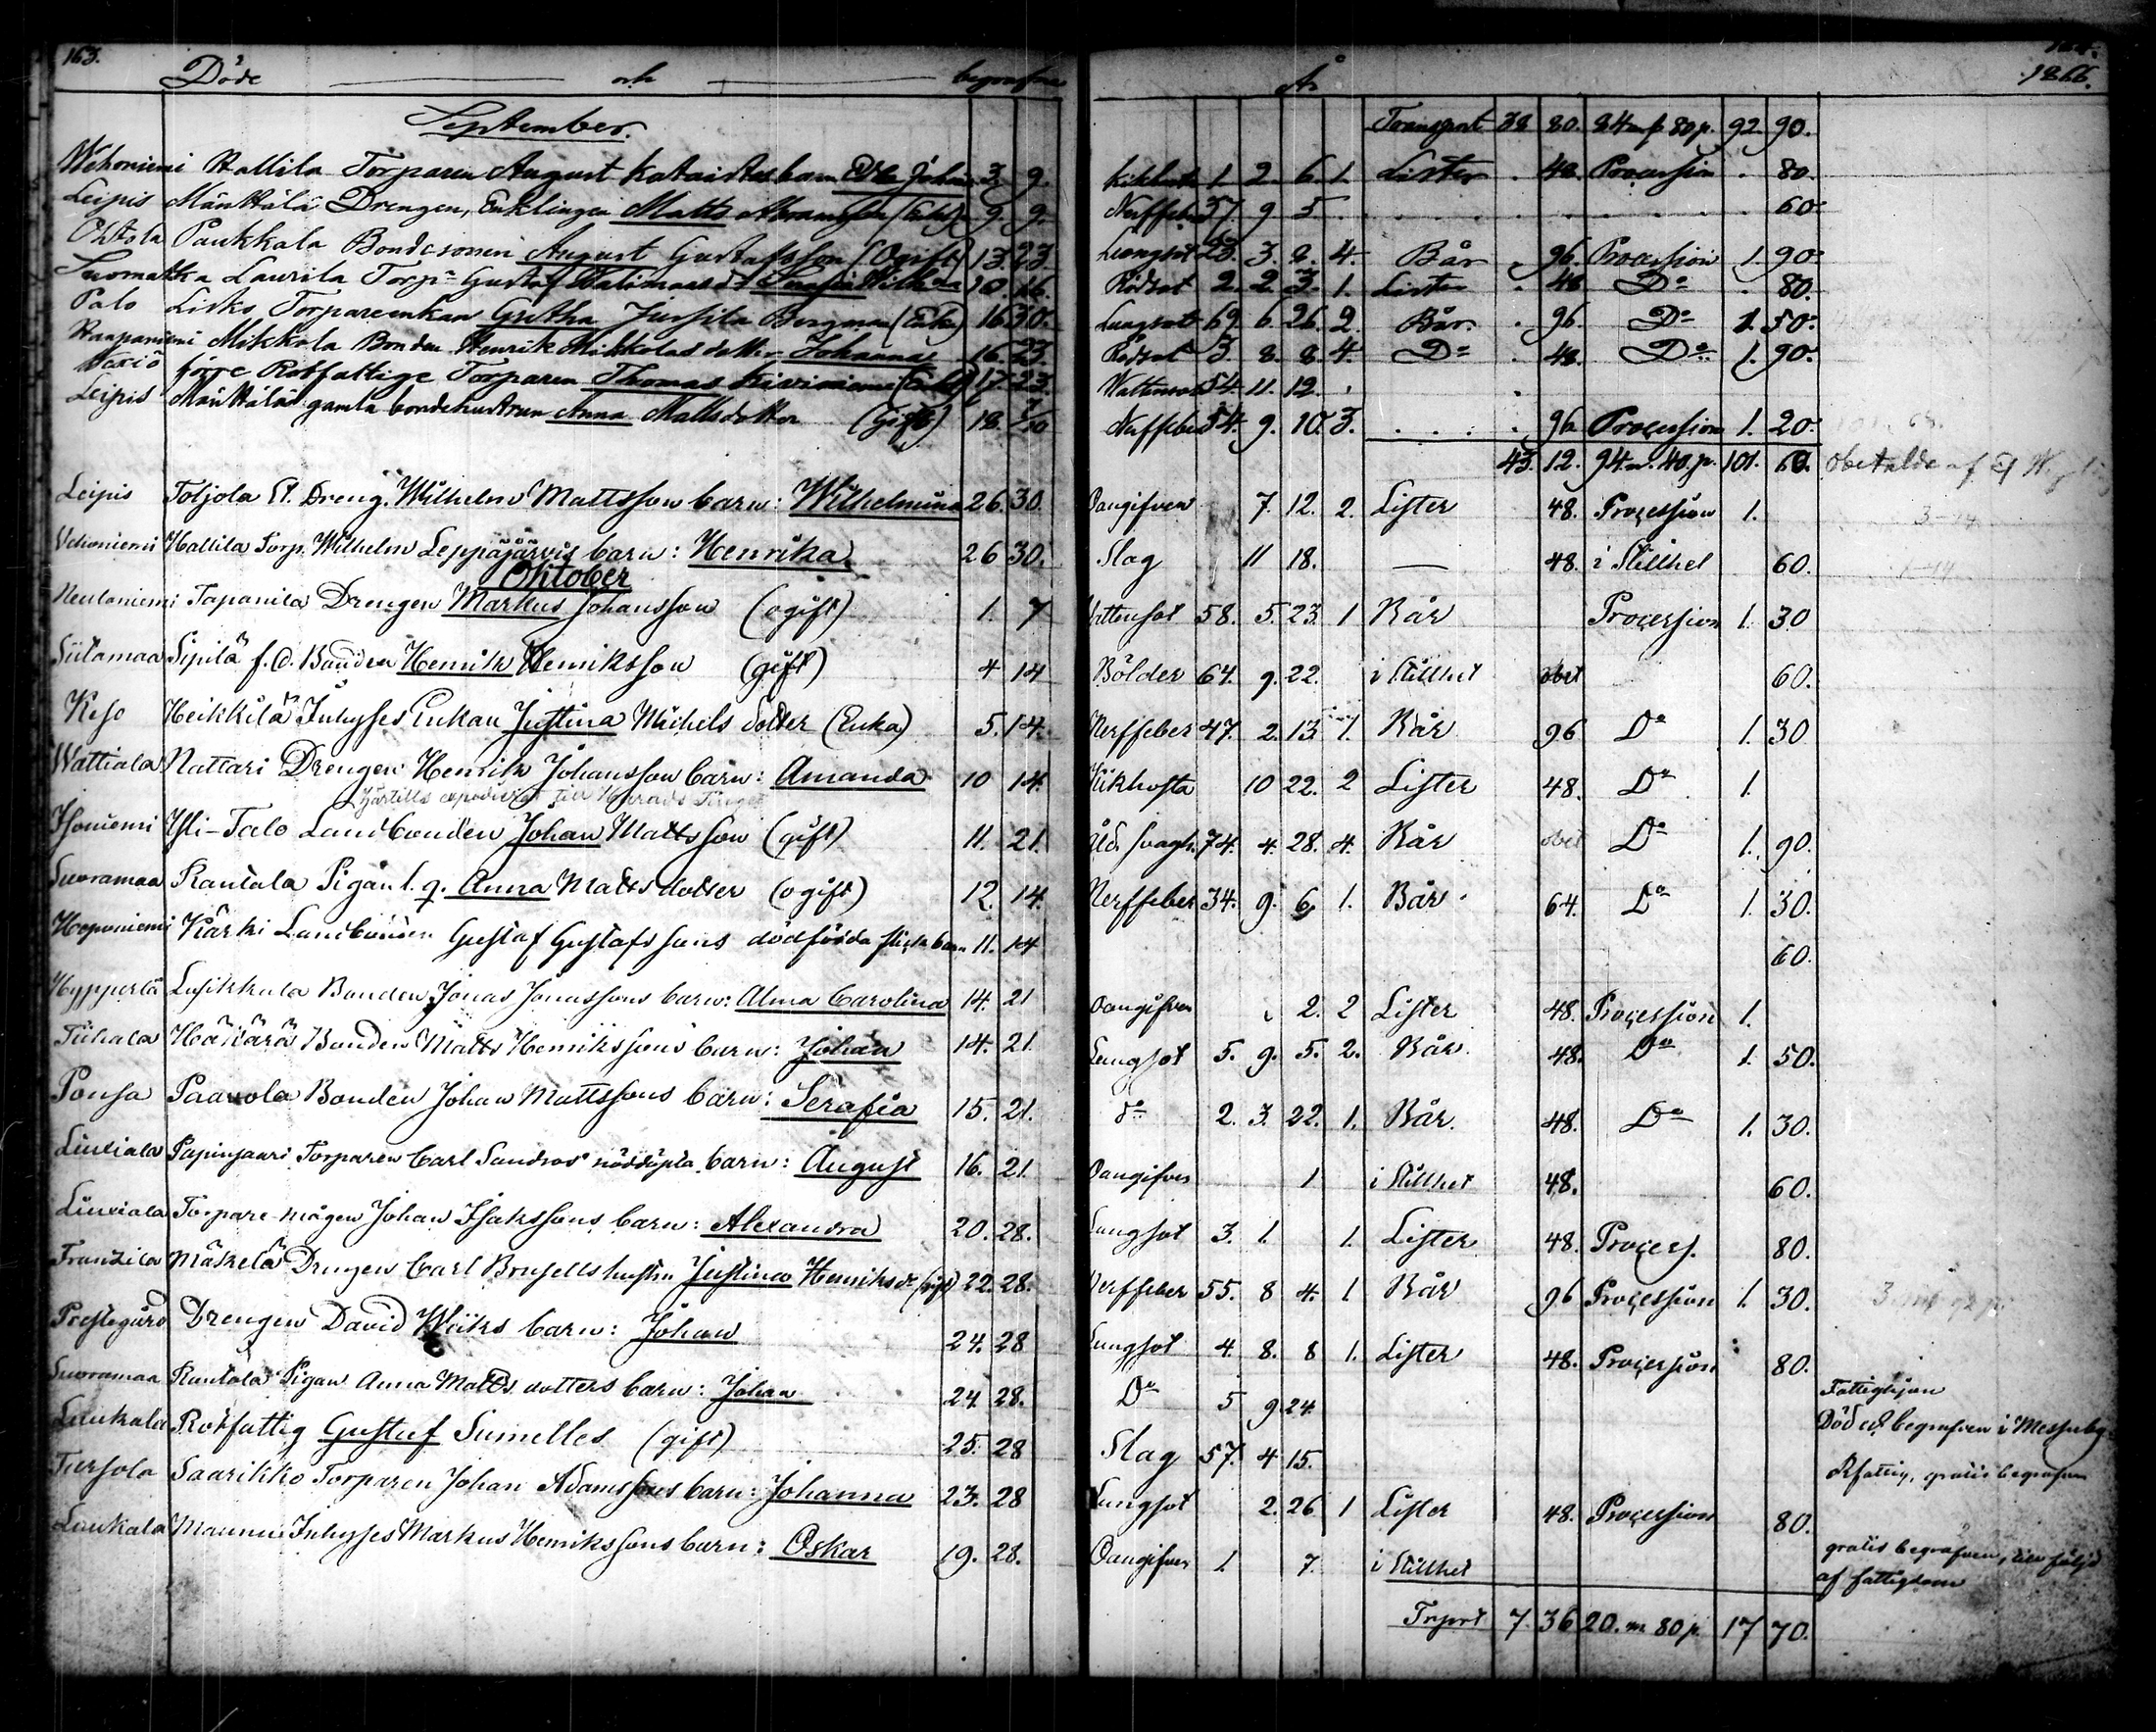 163.
Döde och begrafne År 1866.
September.
Transport 38 80. 84 m. 80 p. 92. 90.
Wehoniemi Hallila Torparen August Kataistos barn Edla Johan 3. 9. Kikhosta 1. 2. 6. 1. Lister . 48. Procession . 80.
Leipis Mänttälä Drengen, Enklingen Matts Abramsson (Enkl) 9. 9. Nerffeber 57. 9 5 60.
Ohtola Paukkala Bondesonen August Gustafsson (Ogift) 13. 23. Lungsot 23. 3. 8. 4. Bår . 96. Procession 1. 90.
Laurila Torp. Gustaf Wilhelmina 10. 16. Rödsot 2. 2. 3. 1. Lister . 48 Do . 80.
Palo Lisko Torpareenkan Gretha Bergman (Enk) 16. 30. Lungsot 69. 6. 26. 2. Bår . 96. Do 1. 50.
Haapaniemi Mikkola Bonden Henrik Mikkolas dotter Johanna 16. 23. Rödsot 3. 8. 8 4. Do . 48. Do 1. 90.
förre Rotfattige Torparen Thomas Kiviniemi (Enkl) 17. 23. Wattensot 54. 11. 12.
Leipis Mänttälä gamla bondehustrun Anna Mattsdotter (Gift) 18. 7/10 Nerffeber 54. 9. 10. 3. 96 Procession 1. 20.
43. 12. 94 m. 40. p. 101. 60. obetalde af
Leipis Toljola Et. Dreng. Wilhelm Mattsson barn: Wilhelmina 26. 30. Oangifven 7. 12. 2. Lister 48. Procession 1.
Vehoniemi Hallila Torp. Wilhelm Leppäjärvis barn: Henrika 26 30. Slag 11 18. — 48. i Stillhet 60.
Oktober
Neulaniemi Tapanila Drengen Markus Johansson (ogift) 1. 7 Vattensot 58. 5. 23. 1 Bår Procession 1. 30
Siitamaa Sipilä f. d. Bonden Henrik Henriksson (gift) 4 14 Bölder 64. 9. 22. i Stillhet obet 60.
Keso Heikkilä Inhyses Enkan Justina Michels dotter (Enka) 5. 14. Nerffeber 47. 2. 13 1. Bår 96 Do 1. 30
Wattiala Nattari Drengen Henrik Johansson barn: Amanda 10 14. Kikhosta 10 22. 2 Lister 48. Do 1.
Isoniemi Yli-Talo Landbonden Johan Mattsson (gift) 11. 21. Åld. svagh. 74. 4. 28. 4. Bår obet Do 1. 90.
Suoramaa Rantala Pigan l. q. Anna Mattsdotter (ogift) 12. 14. Nerffeber 34. 9. 6 1. Bår 64. Do 1. 30.
Heponiemi Kärki Landbonden Gustaf Gustafssons dödfödda flicko barn 11. 14 60.
Hypperlä Lusikkala Bonden Jonas Jonassons barn: Alma Carolina 14. 21 Oangifven 2. 2 Lister 48. Procession 1.
Tiihala Häkärä Bonden Matts Henrikssons barn: Johan 14. 21. Lungsot 5. 9. 5. 2. Bår. 48. Do 1. 50.
Ponsa Paavola Bonden Johan Mattssons barn: Serafia 15. 21. do 2. 3. 22. 1. Bår. 48. Do 1. 30.
Liuxiala Papinsaari Torparen Carl Sandros nöddöpta barn: August 16. 21. Oangifven 1 i Stillhet 48. 60.
Liuxiala Torpare mågen Johan Isakssons barn: Alexandra 20. 28. Lungsot 3. 1. 1. Lister 48. Process. 80.
Frantzila Mäkelä Drengen Carl Brusells hustru Justina Henriksdr (gift) 22. 28. Nerffeber 55. 8 4. 1. Bår 96 Procession 1. 30.
Prestegård Drengen David Wiiks barn: Johan 24. 28 Lungsot 4. 8. 8 1. Lister 48. Procession 80.
Suoramaa Rantala Pigan Anna Matts dotters barn: Johan 24. 28. Do 5 9 24. Fattighjon Död och begrafven i Messuby
Laukala Rotfattig Gustaf Sumelles (gift) 25. 28 Slag 57. 4 15. Rfattig, gratis begrafven
Tiersola Saarikko Torparen Johan Adamssons barn: Johanna 23. 28 Lungsot 2. 26 1 Lister 48. Procession 80.
Laukala Maunu Inhyses Markus Henrikssons barn: Oskar 19. 28. Oangifven 1. 7. i Stillhet gratis begrafven, till följd af fattigdom
Trsport 7. 36 20. m 80 p. 17 70.